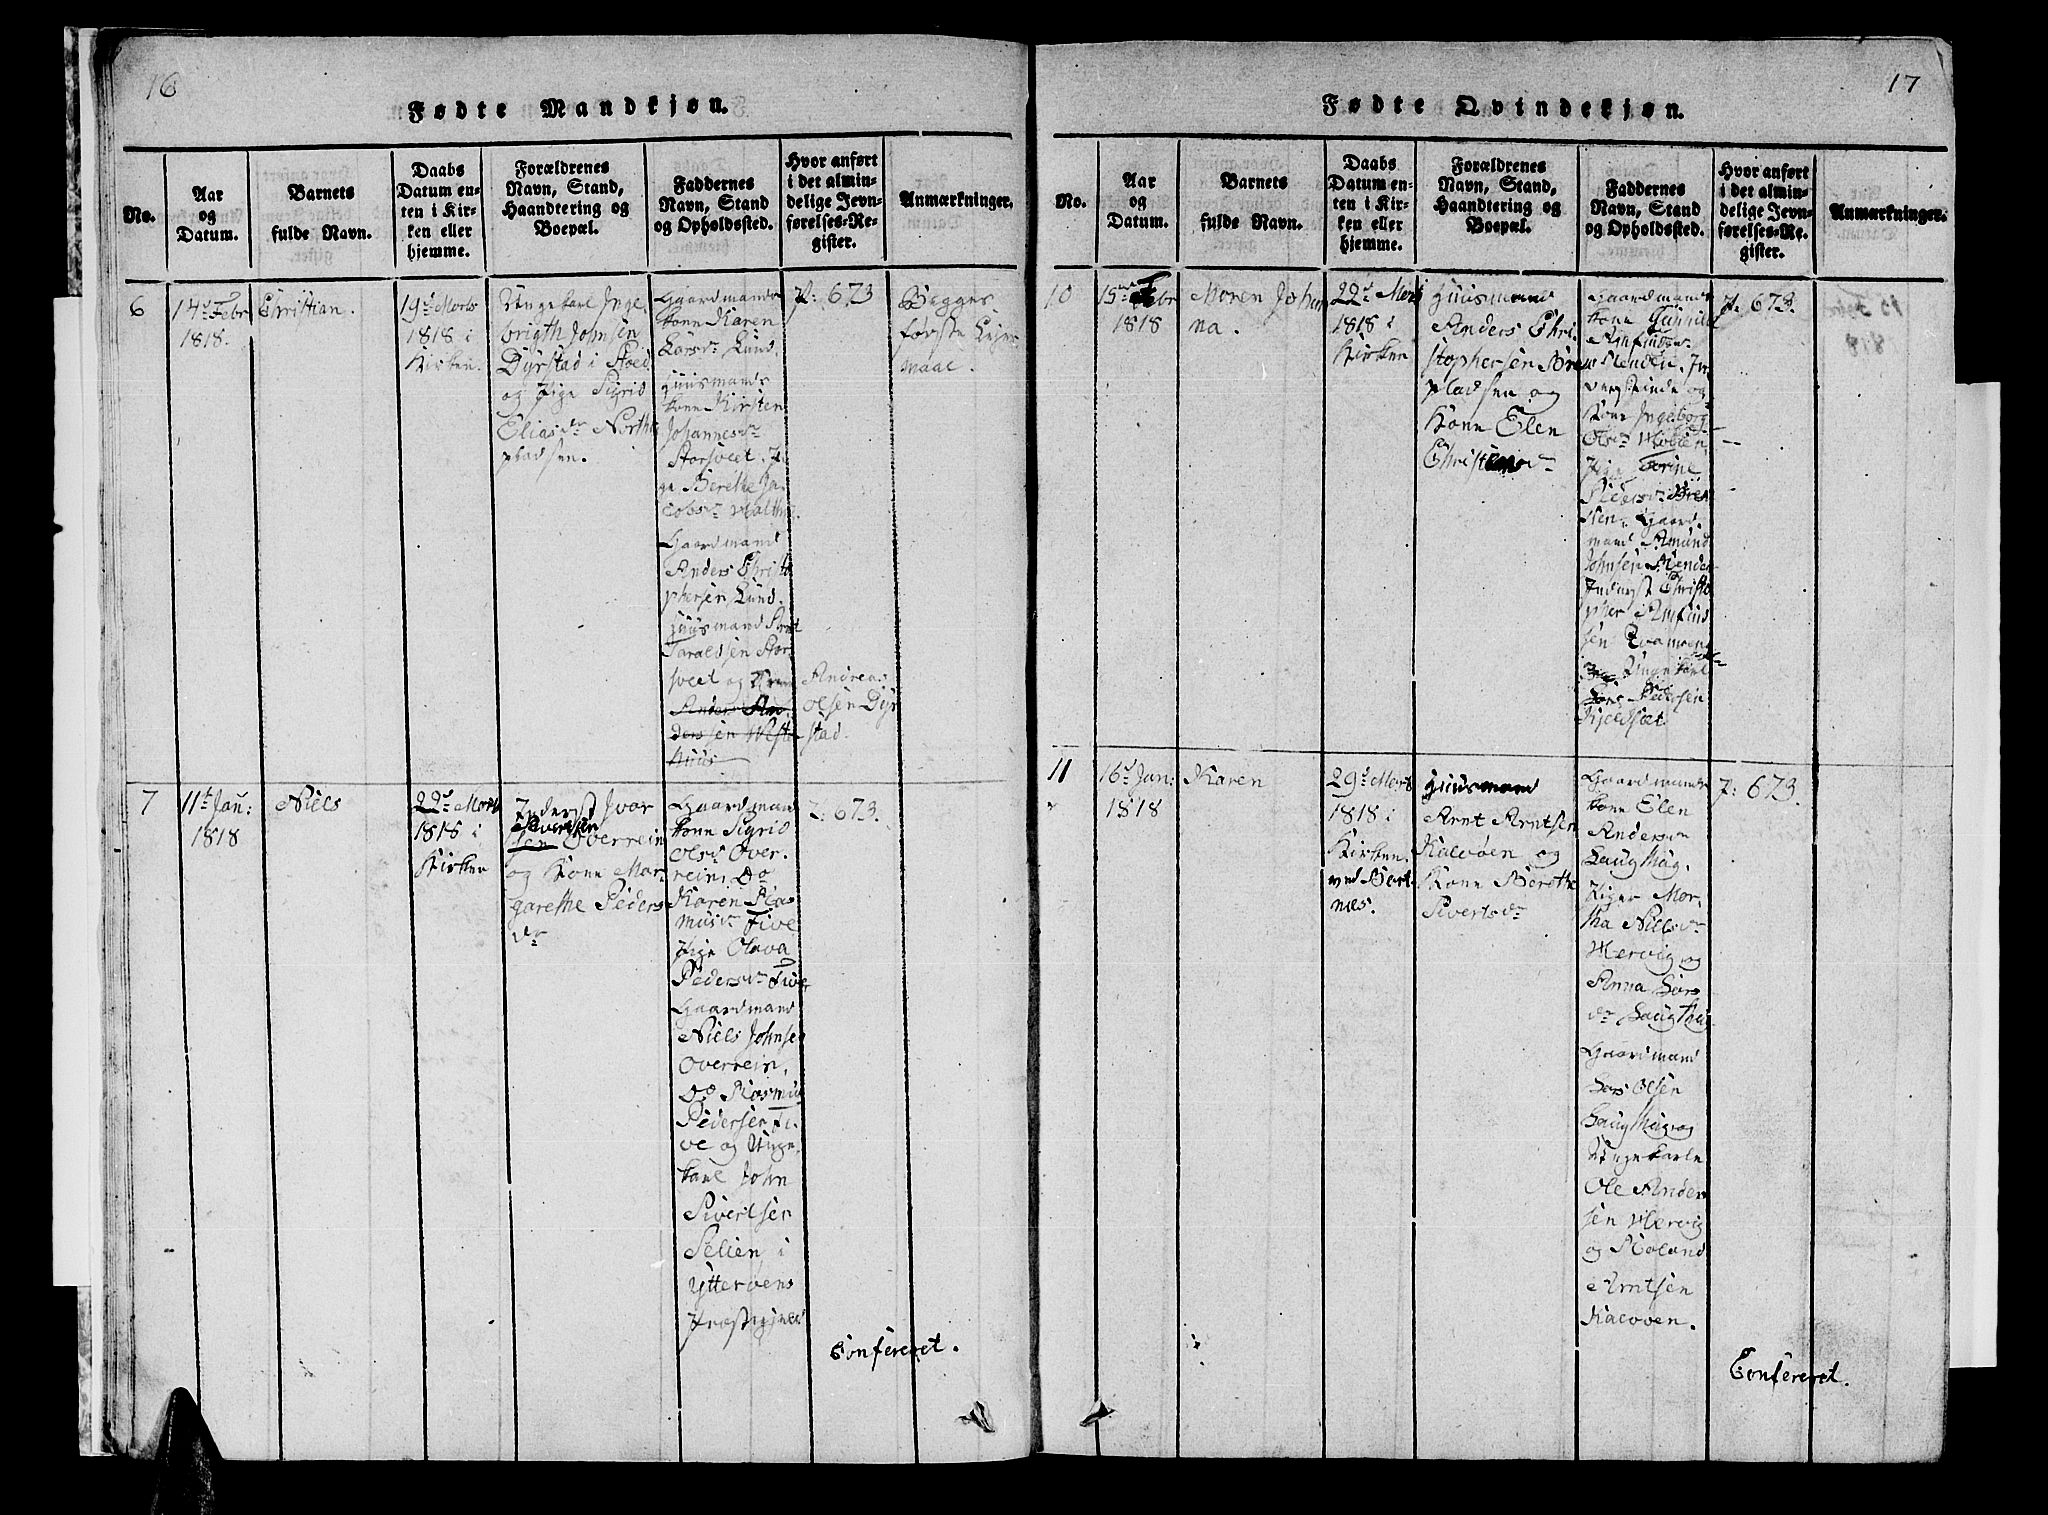 16
Fødte Mandkjøn.
No.
Aar
og
Datum.
Barnets
fulde Navn.
Daabs
Datum en-
ten i Kir-
ken eller
hjemme.
Forældrenes
Navn, Stand,
Haandtering og
Boepæl.
Faddernes
Navn, Stand
og Opholdssted.
Hvor anført
i det almin-
delige Jevn-
førelses-Re-
gister.
Anmærkninger.
6
14de Febr
1818.
Christian.
19de Morts
1818 i
Kirken.
Ungekarl Inge
brigth Johnsen
Dyrstad i Stoed
og Pige Sigrid
Eliasdr North
pladsen.
Gaardmands
kone Karen
Larsdr Lund.
Huusmands
kone Kirsten
Johannesdr
Storsvet. Pi
ge Berethe Ja
cobsdr
Gaardmand
Anders Christo
phersen Lund.
Huusmand
Taraldsen Stor
svet og
Anders An
derssen
Andrea:
olsen Dyr
stad.
P: 673
Begges
første Leier
maal.
7
11te Jan:
1818
Niels
22de Morts
1818 i
Kirken
Inderst Ivar
Sivertsen
sen Overrein
og Kone Mar
garethe Peders
dr
Gaardmand
kone Sigrid
Olsdr Over
rein, Do
Karen Ras
musdr Five
Pige Olava
Pedersdr Five
Gaardmand
Niels Johnsen
Overrein,
Do Rasmus
Pedersen Fi
ve og Unge
karl John
Sivertsen
Selien i
Ytterøens
Præstegield
P: 673.
Conferert.
17
Fødte Qvindekjøn.
No.
Aar
og
Datum.
Barnets
fulde Navn.
Daabs
Datum en-
ten i Kir-
ken eller
hjemme.
Forældrenes
Navn, Stand,
Haandtering og
Boepæl.
Faddernes
Navn, Stand
og Opholdssted.
Hvor anført
i det almin-
delige Jevn-
førelses-Re-
gister.
Anmærkninger.
10
15de Febr
1818
Maren Johan
na.
22de Morts
1818 i
Kirken
Huusmand
Anders Chri
stophersen Bre
pladsen og
Kone Elen
Christensdr
Gaardmands
kone Gunnild
Amfinsdr
Kone Ingeborg
Olsdr
Pige Serine
Pedersdr
Gaard
mand Amund
Johnsen
Inderst Christo
pher Amfind
sen
Ungekarl
Lars Pedersen
P: 673.
11
16de Jan:
1818
Karen
29de Morts
1818 i
Kirken
ved Bert
nes.
Huusmand
Arnt Arntsen
Kalvøen og
Kone Berethe
Sivertsdr
Gaardmands
kone Elen
Andersdr
Laughug.
Piger Mar
tha Nielsdr
Hervig og
Anna Lars
dr Laughug
Gaardmand
Lars Olsen
Laughug og
Ungekarle
Ole Ander
sen Hervig
og Roland
Arntsen
Kalvøen.
P: 673.
Confereret.